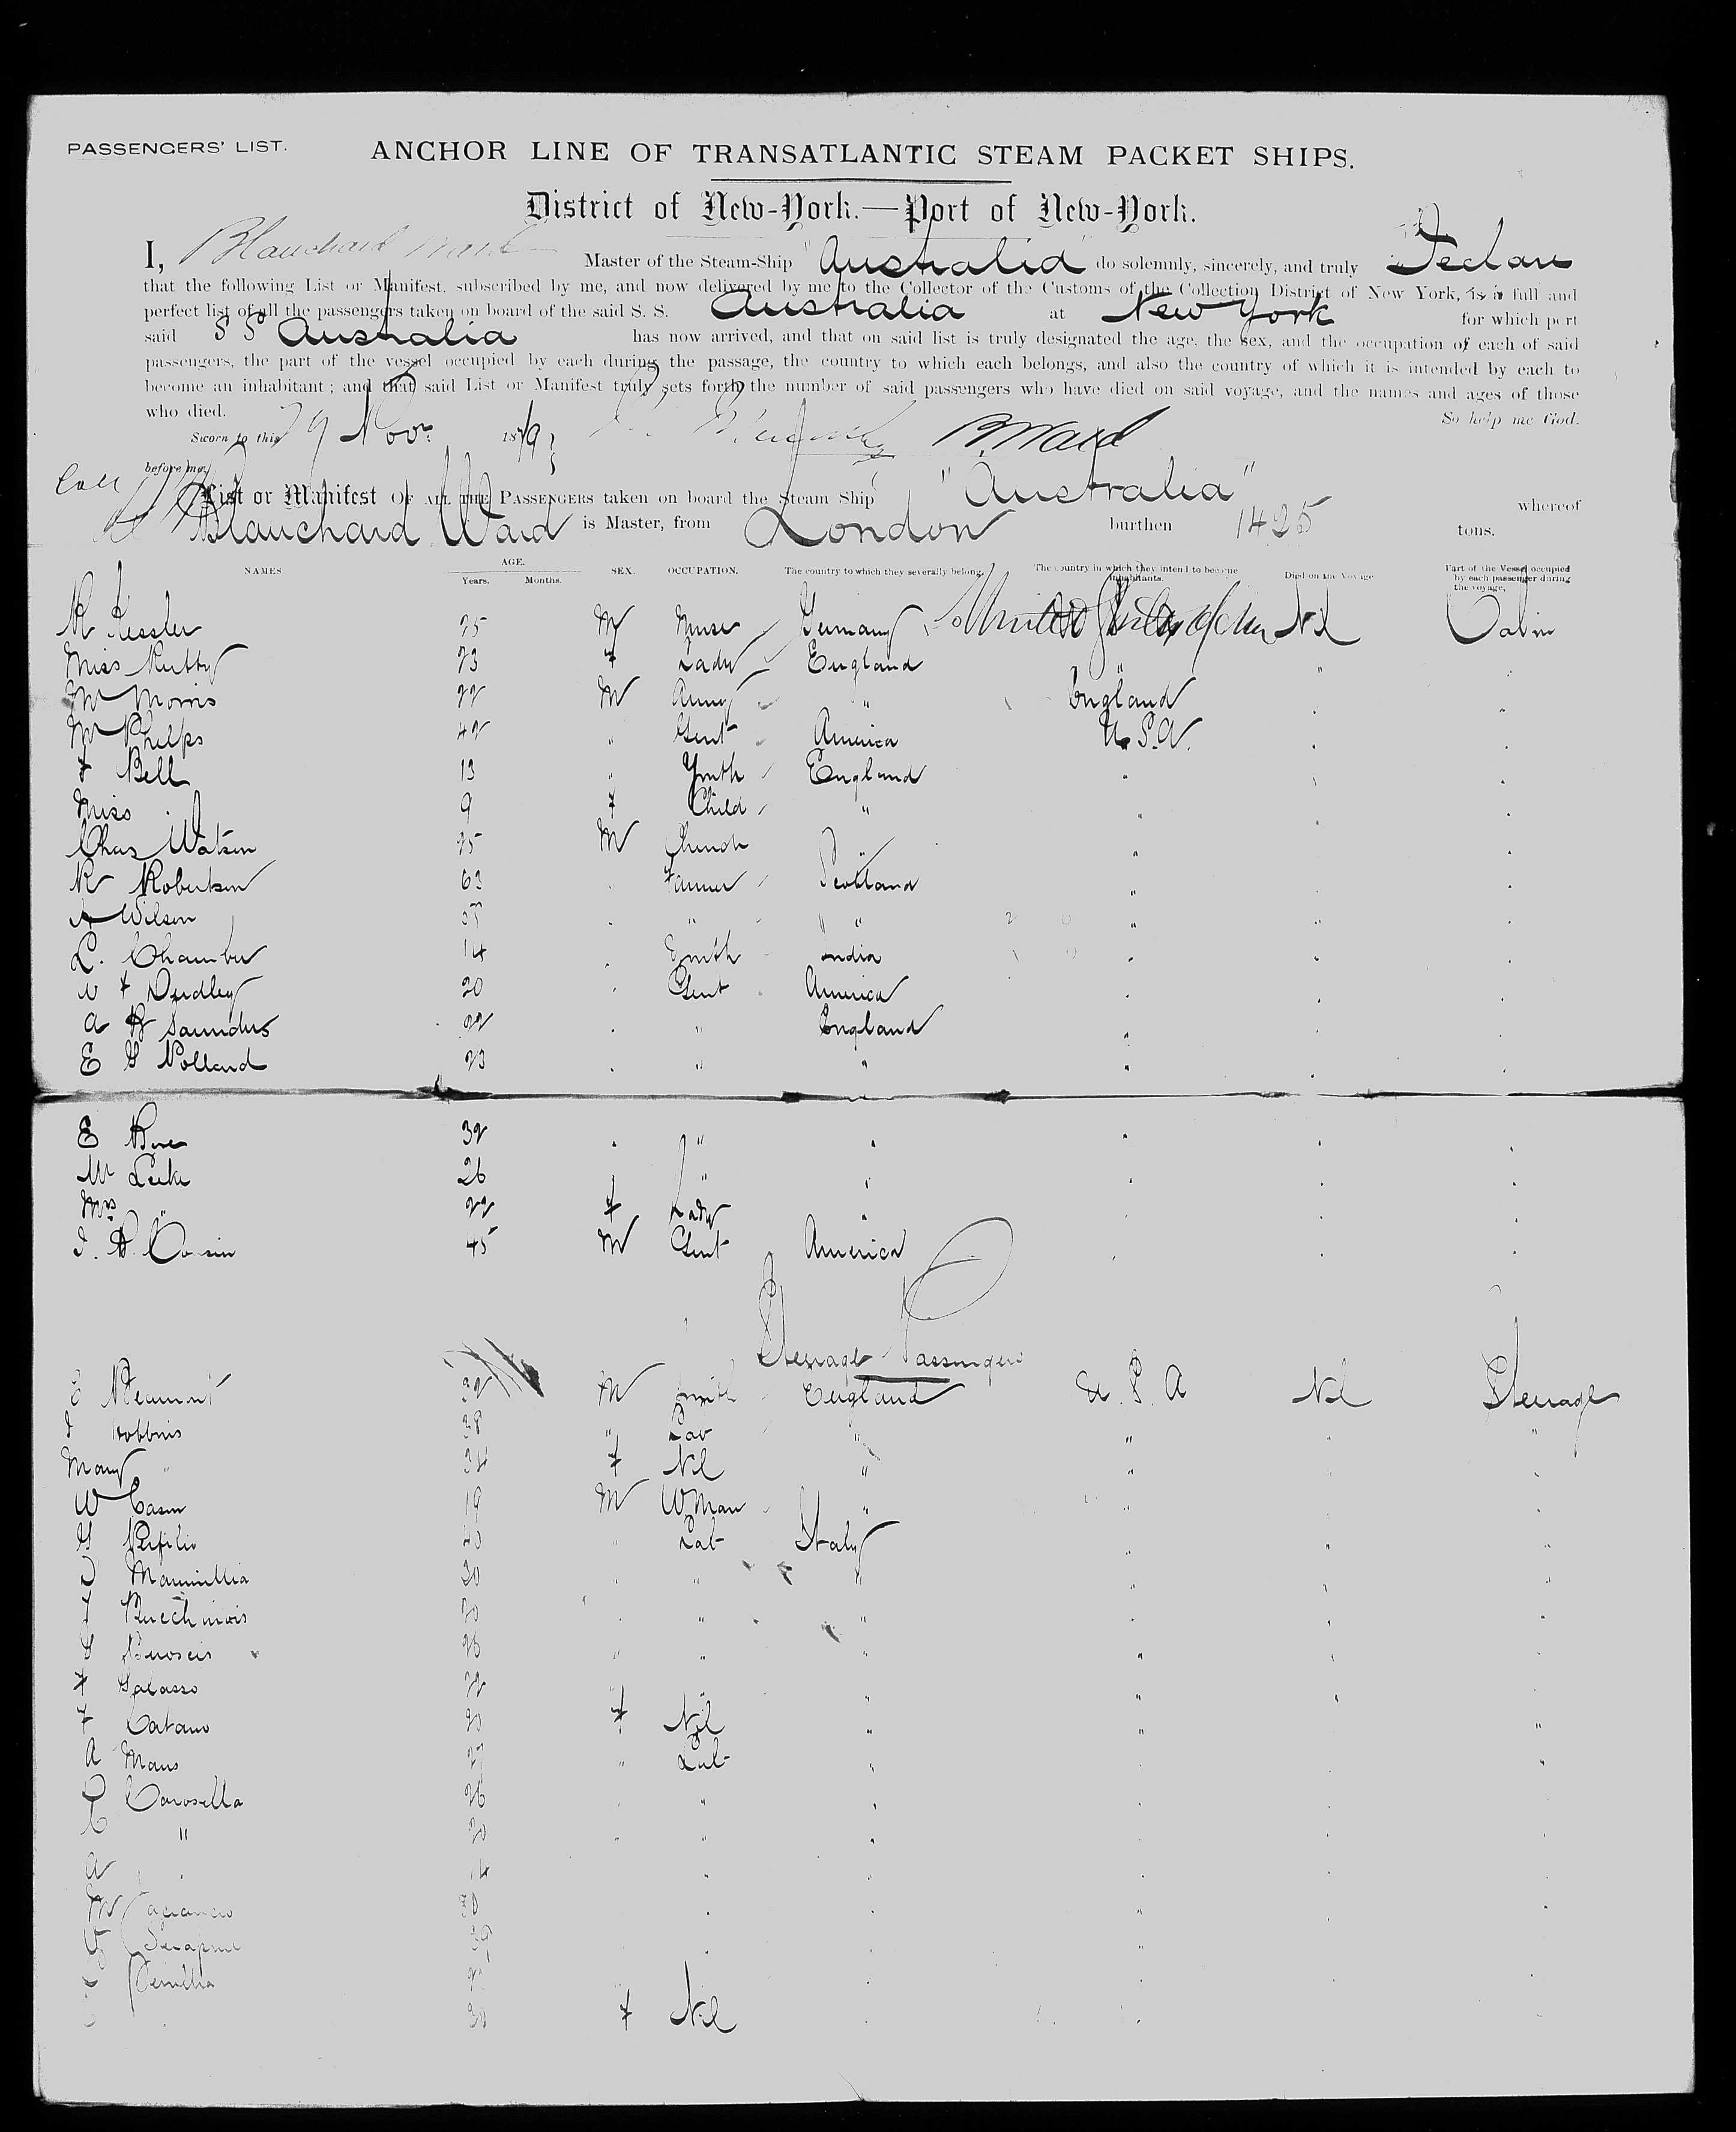 PASSENGERS' LIST.
ANCHOR LINE OF TRANSATLANTIC STEAM PACKET SHIPS.
District of New-York.—Port of New-York.
I, Blanchard Ward Master of the Steam-Ship "Australia" do solemnly, sincerely, and truly Declare
that the following List or Manifest, subscribed by me, and now delivered by me to the Collector of the Customs of the Collection District of New York, is a full and
perfect list of all the passengers taken on board of the said S. S. Australia at New York for which port
said S S Australia has now arrived, and that on said list is truly designated the age, the sex, and the occupation of each of said
passengers, the part of the vessel occupied by each during the passage, the country to which each belongs, and also the country of which it is intended by each to
become an inhabitant; and that said List or Manifest truly sets forth the number of said passengers who have died on said voyage, and the names and ages of those
who died. So help me God.
Sworn to this 29 Novr. 1879 B. Ward
before me,
List or Manifest OF ALL THE PASSENGERS taken on board the Steam Ship "Australia" whereof
Blanchard Ward is Master, from London burthen 1425 tons.
NAMES. AGE. Years. Months. SEX. OCCUPATION. The country to which they severally belong. The country in which they intend to become inhabitants. Died on the Voyage Part of the Vessel occupied by each passenger during the voyage.
R Kessler 25 M Germany United States of Nil Cabin
Miss 23 f Lady England " "
Mr Morris 22 M Army " England
Mr Phelps 42 " Gent America U.S.A.
F Bell 13 " Youth England "
Miss " 9 f Child " "
Chas Watson 25 M Church " "
R Robertson 63 Farmer Scotland "
A Wilson " " "
L. Chamber 14 Youth India "
W F Dudley 20 Gent America "
A H Saunders 22 " England "
E G Pollard 23 " " "
E 32 " "
Mr Leike 26 " "
Mrs " 22 f Lady "
J. B. Cousin 45 M Gent America
Steerage Passengers
E Beaumont 32 M Smith England U.S.A Nil Steerage
J Robbins 38 " Lab " " "
Mary " 34 f Nil " "
W Cason 19 M WMan " "
G 40 " Lab Italy " "
30 " " " "
20 " " "
G 28 " " " "
F Galasso 22 " " " "
F Catano 20 f Nil " " "
A Mans 27 " Lab " "
C Carosella 26 " "
C " 20 " " "
A " 14 " "
M 30 "
39 "
30 f Nil